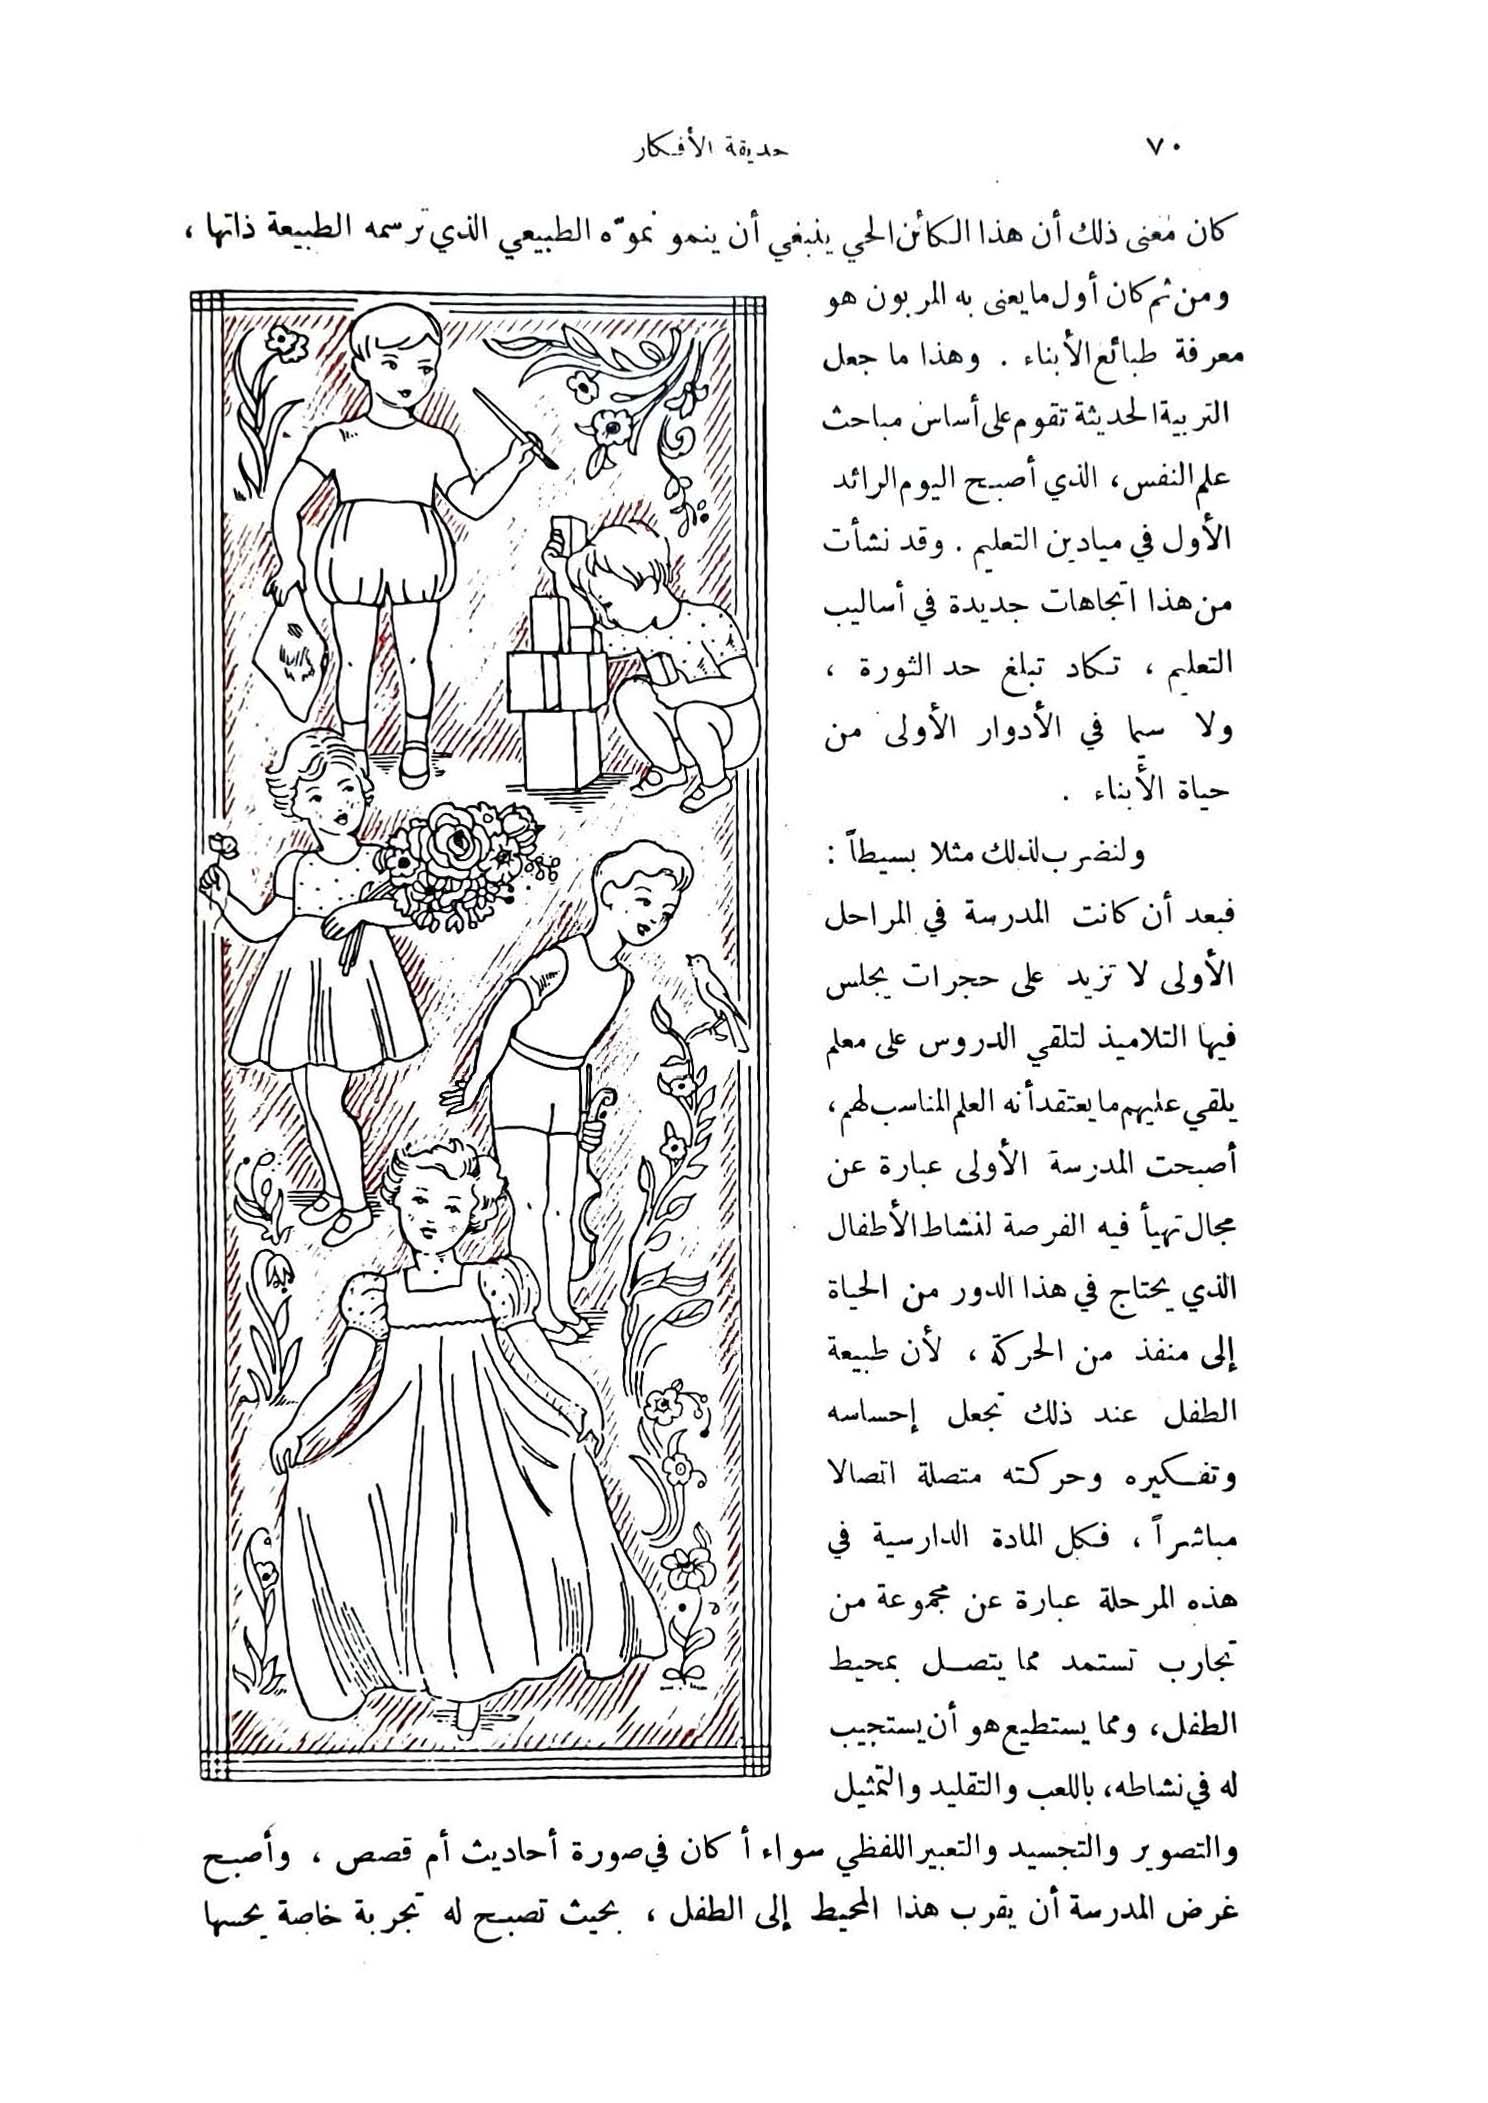 ٧٠
حديقة الأفكار
كان معنى ذلك أن هذا الكائن الحي ينبغي أن ينمو نموّه الطبيعي الذي ترسمه الطبيعة ذاتها ،
ومن ثم كان أول ما يعنى به المربون هو
معرفة طبائع الأبناء . وهذا ما جعل
التربية الحديثة تقوم على أساس مباحث
علم النفس، الذي أصبح اليوم الرائد
الأول في ميادين التعليم . وقد نشأت
من هذا اتجاهات جديدة في أساليب
التعليم ، تكاد تبلغ حد الثورة ،
ولا سيما في الأدوار الأولى من
حياة الأبناء .
ولنضرب لذلك مثلا بسيطاً :
فبعد أن كانت المدرسة في المراحل
الأولى لا تزيد على حجرات يجلس
فيها التلاميذ لتلقي الدروس على معلم
يلقي عليهم ما يعتقد أنه العلم المناسب لهم،
أصبحت المدرسة الأولى عبارة عن
مجال تهيأ فيه الفرصة لنشاط الأطفال
الذي يحتاج في هذا الدور من الحياة
إلى منفذ من الحركة ، لأن طبيعة
الطفل عند ذلك تجعل إحساسه
وتفكيره وحركته متصلة اتصالا
مباشراً ، فكل المادة الدارسية في
هذه المرحلة عبارة عن مجموعة من
تجارب تستمد مما يتصل بمحيط
الطفل، ومما يستطيع هو أن يستجيب
له في نشاطه، باللعب والتقليد والتمثيل
والتصوير والتجسيد والتعبير اللفظي سواء أكان في صورة أحاديث أم قصص ، وأصبح
غرض المدرسة أن يقرب هذا المحيط إلى الطفل ، بحيث تصبح له تجربة خاصة يحسها